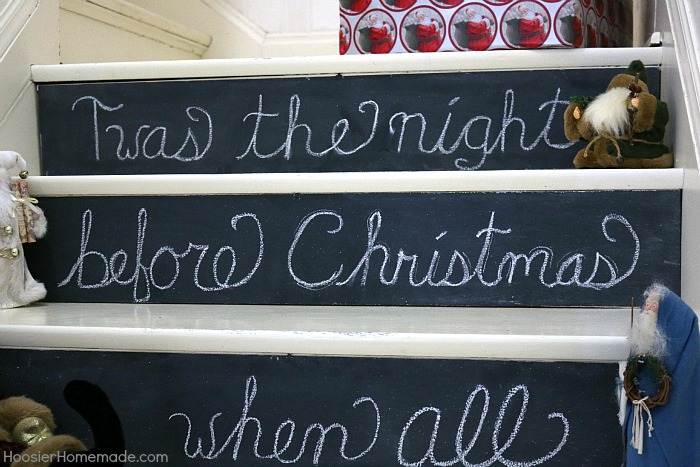 Twas the night
before Christmas
when all
HoosierHomemade.com